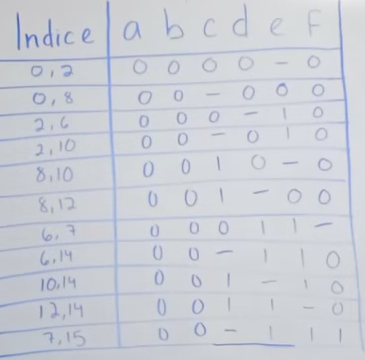 Indice a b c d e f
0,2 0 0 0 0 - 0
0,8 0 0 - 0 0 0
2,6 0 0 0 - 1 0
2,10 0 0 - 0 1 0
8,10 0 0 1 0 - 0
8,12 0 0 1 - 0 0
6,7 0 0 0 1 1 -
6,14 0 0 - 1 1 0
10,14 0 0 1 - 1 0
12,14 0 0 1 1 - 0
7,15 0 0 - 1 1 1